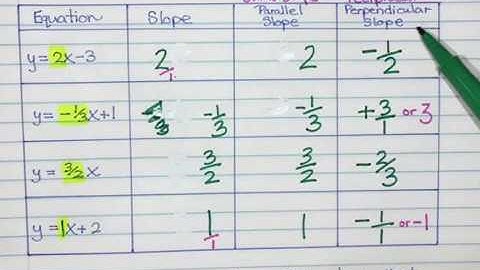 Equation Slope Parallel Slope Perpendicular Slope
y = 2x-3 2/1 2 -1/2
y = -1/3x+1 -1/3 -1/3 +3/1 or 3
y = 3/2x 3/2 3/2 -2/3
y = 1x+2 1/1 1 -1/1 or -1